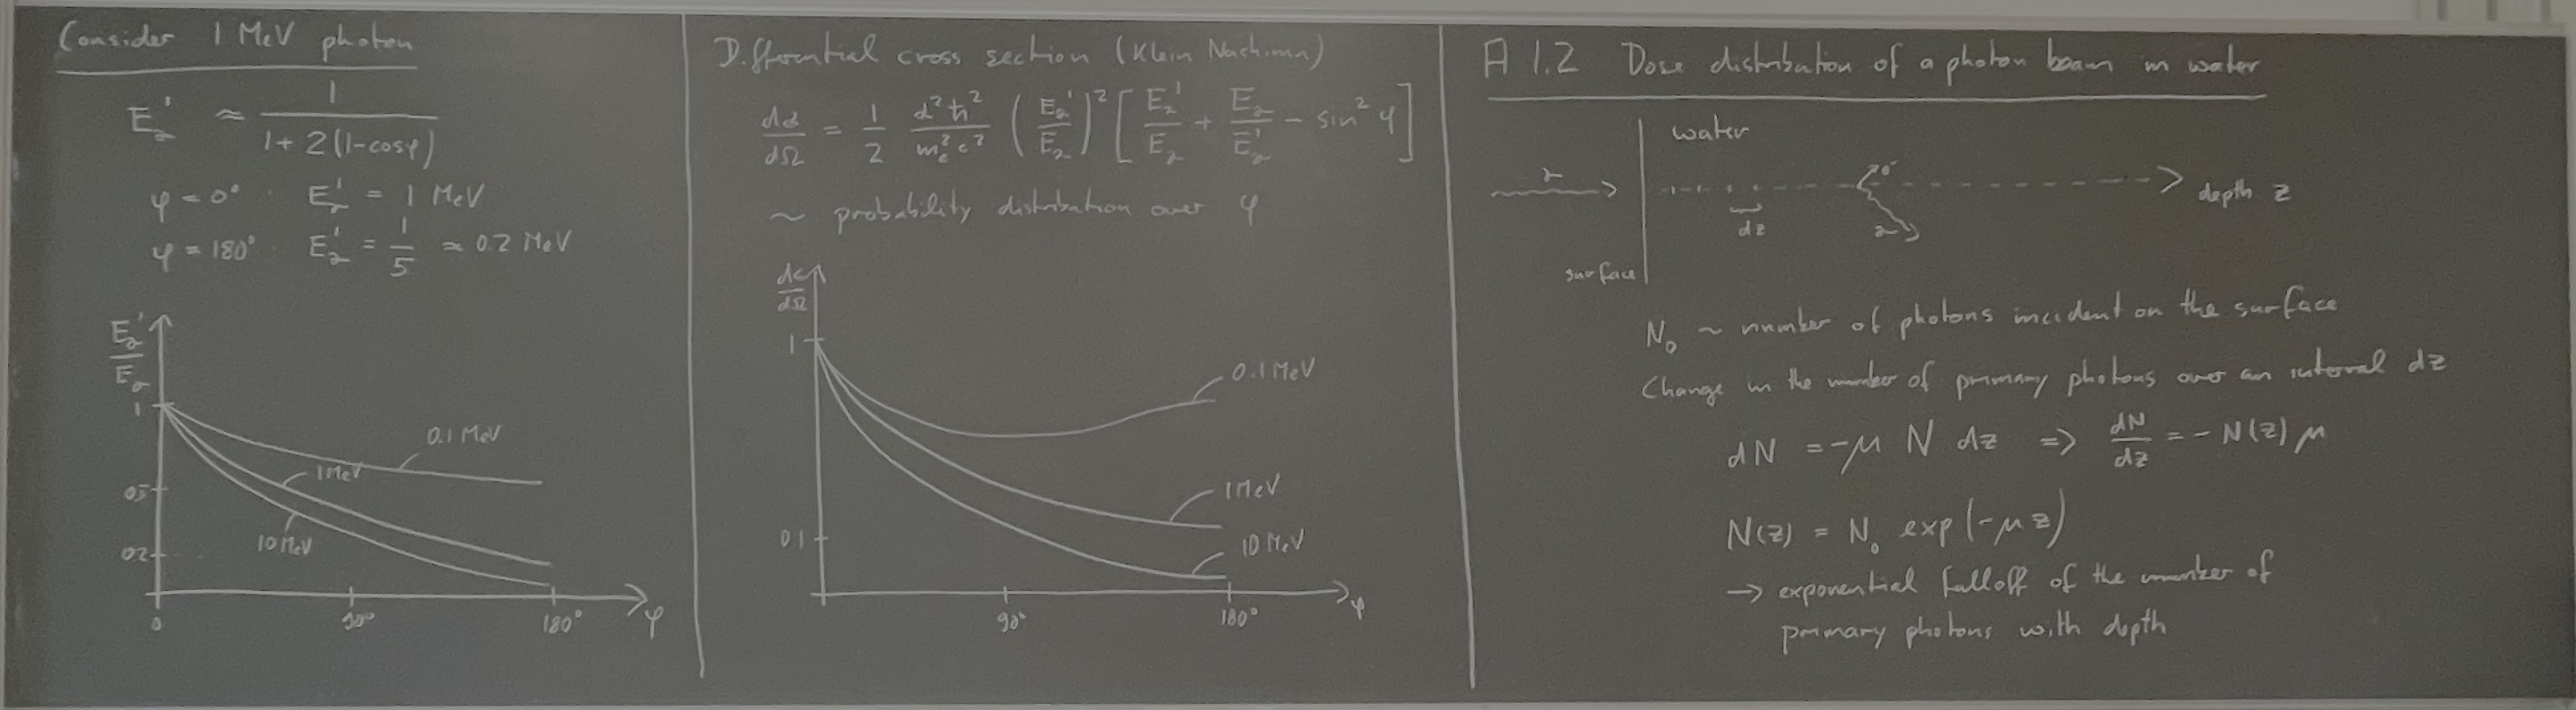 Consider 1 MeV photon
E_γ' ≈ 1 / (1 + 2(1-cosφ))
φ = 0° : E_γ' = 1 MeV
φ = 180° : E_γ' = 1/5 ≈ 0.2 MeV
E_γ' / E_γ
1
0.5
0.2
0.1 MeV
1 MeV
10 MeV
0
90°
180°
φ
Differential cross section (Klein Nishina)
dσ/dΩ = 1/2 α²ħ²/(m_e²c²) (E_γ'/E_γ)² [E_γ'/E_γ + E_γ/E_γ' - sin²φ]
~ probability distribution over φ
dσ/dΩ
1
0.1
0.1 MeV
1 MeV
10 MeV
90°
180°
φ
A 1.2 Dose distribution of a photon beam in water
water
γ
dz
γ
depth z
surface
N₀ ~ number of photons incident on the surface
Change in the number of primary photons over an interval dz
dN = -μ N dz => dN/dz = - N(z) μ
N(z) = N₀ exp(-μz)
→ exponential falloff of the number of
primary photons with depth